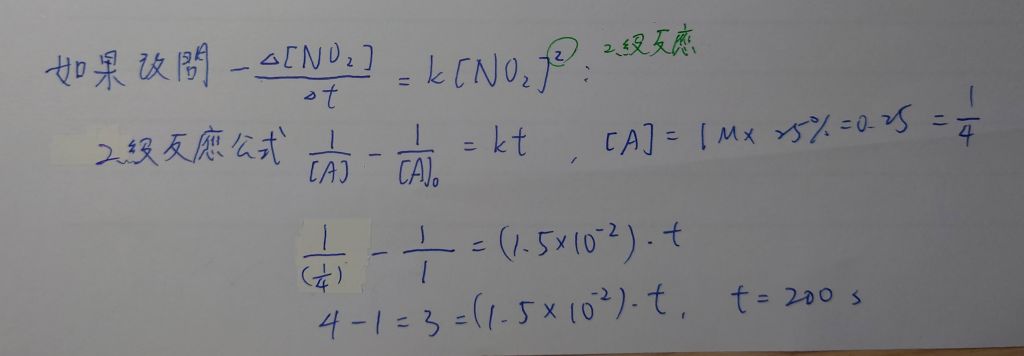 如果改問 -Δ[NO₂]/Δt = k[NO₂]² : 2級反應
2級反應公式 1/[A] - 1/[A]₀ = kt , [A] = 1M × 25% = 0.25 = 1/4
1/(1/4) - 1/1 = (1.5×10⁻²)·t
4-1 = 3 = (1.5×10⁻²)·t, t = 200 s